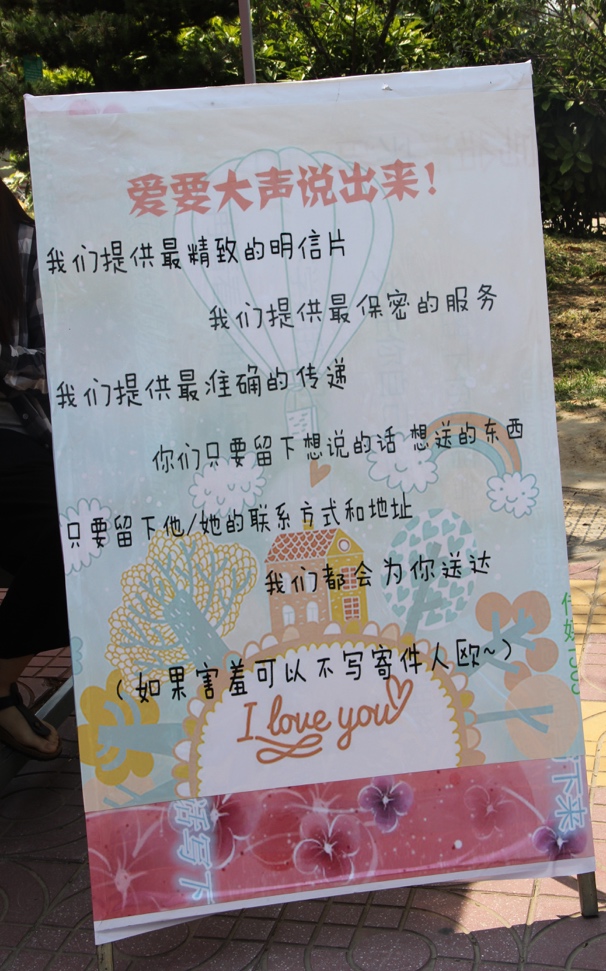 爱要大声说出来！
我们提供最精致的明信片
我们提供最保密的服务
我们提供最准确的传递
你们只要留下想说的话 想送的东西
只要留下他/她的联系方式和地址
我们都会为你送达
（如果害羞可以不写寄件人欧~）
I love you
写下
下来